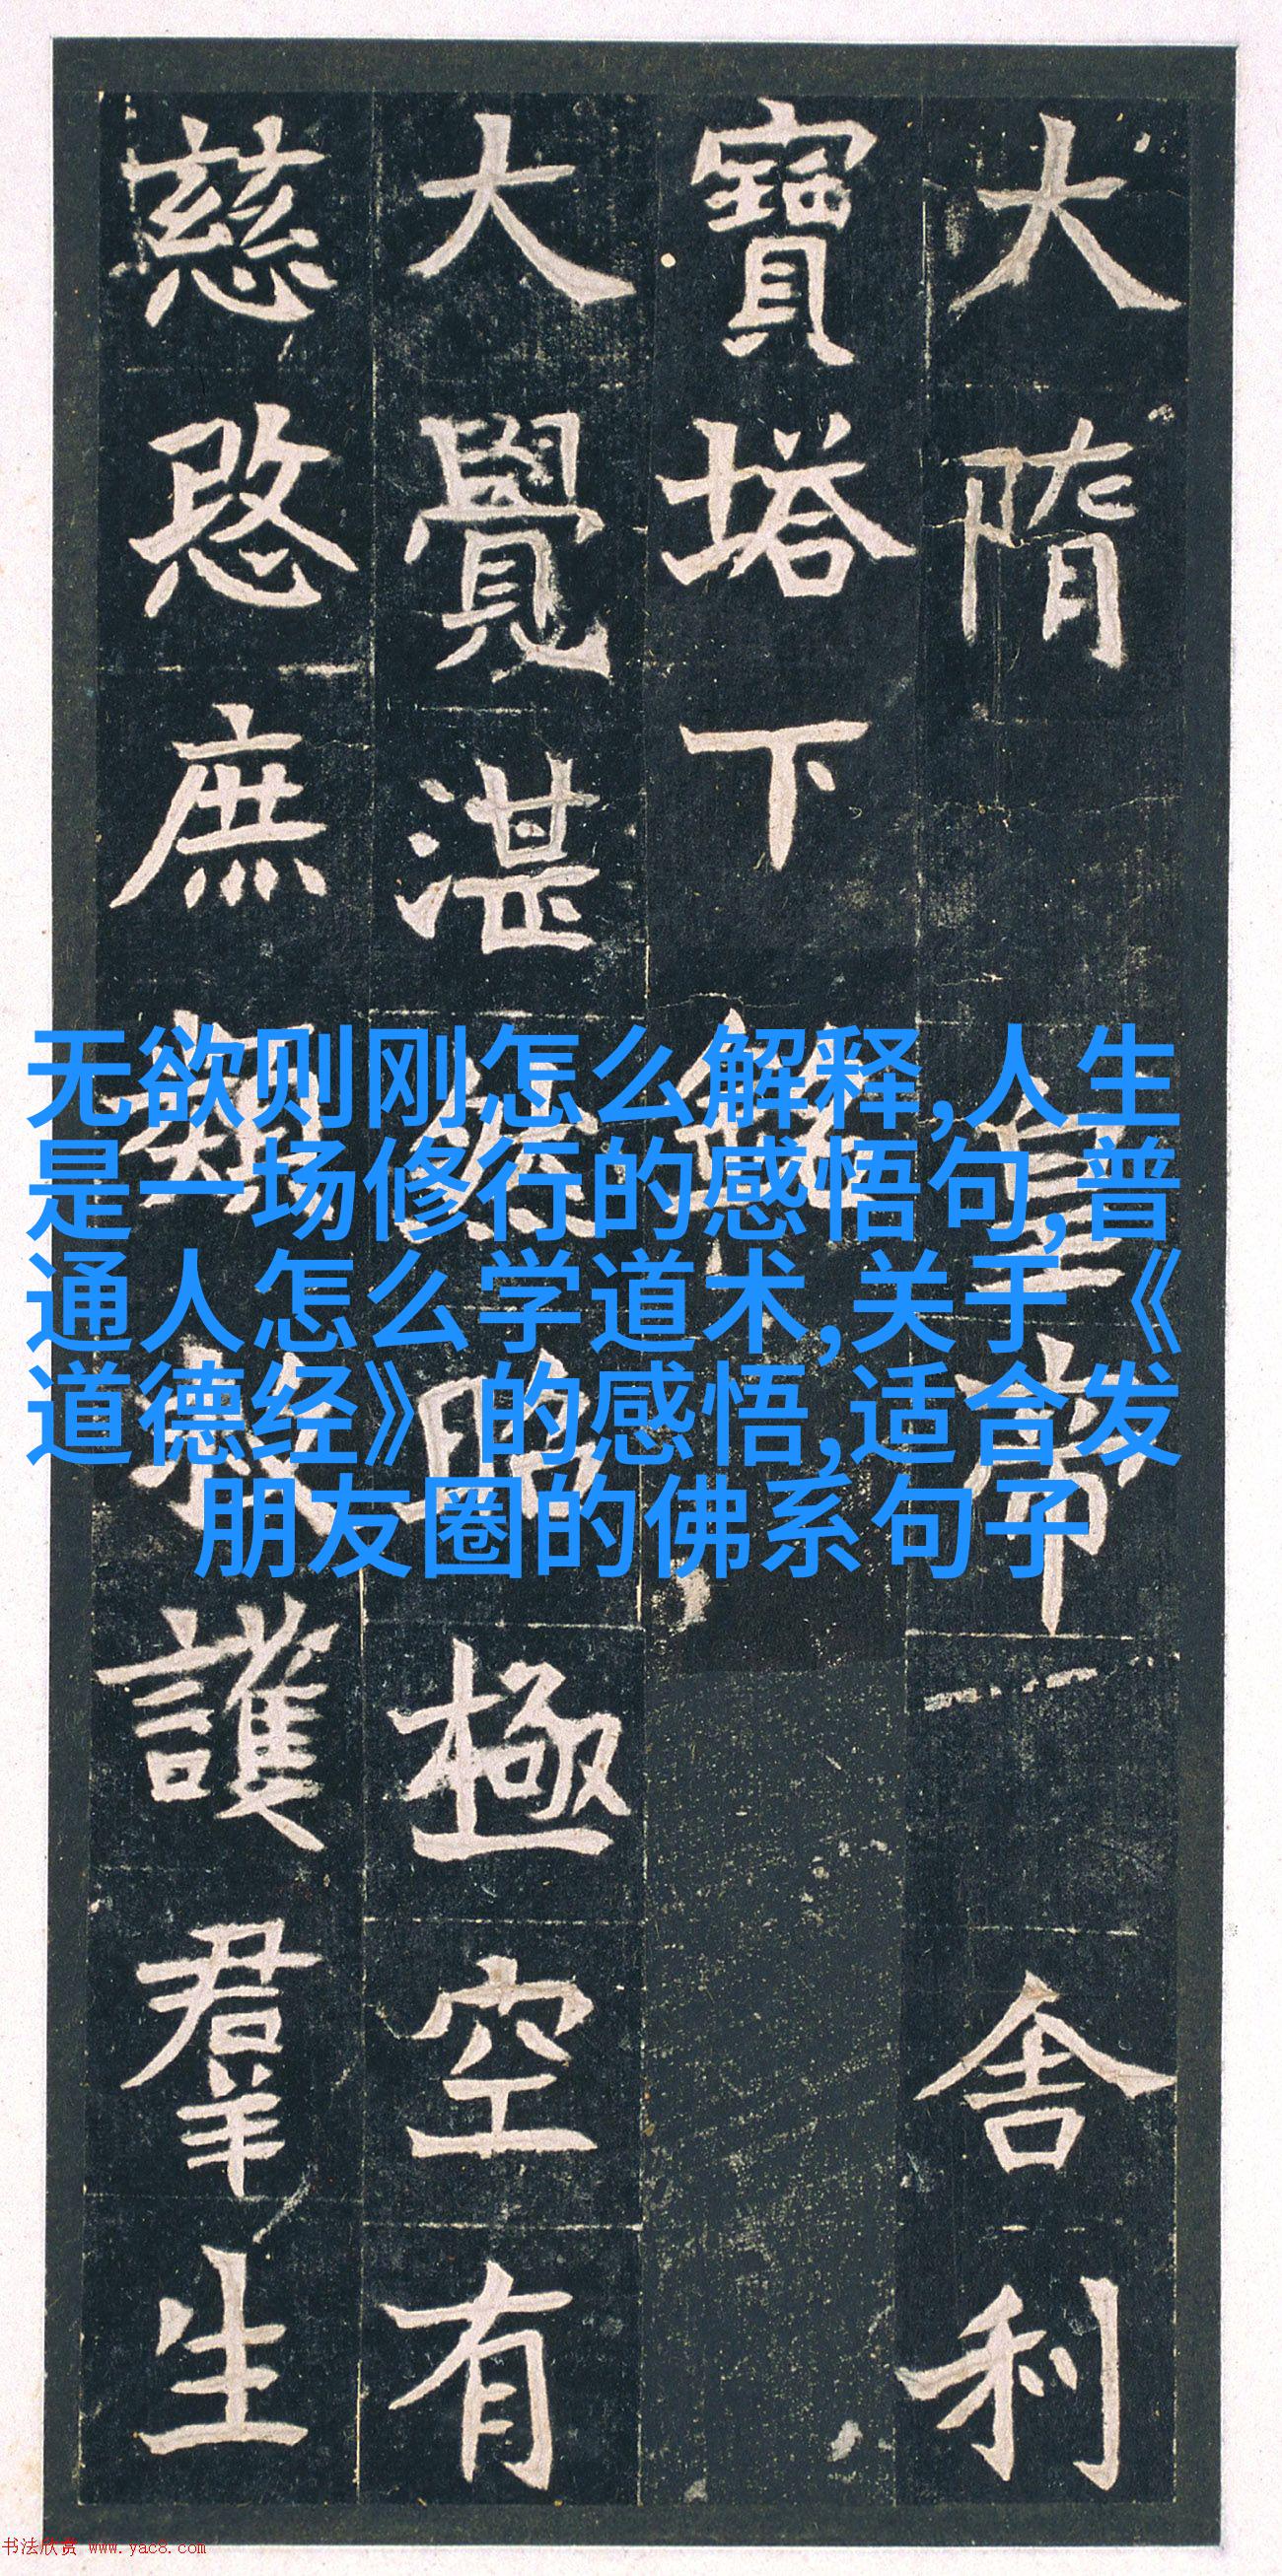 大隋皇帝舍利
寶塔下銘
大覺湛然昭極空有
慈愍庶類救護羣生
无欲则刚怎么解释,人生
是一场修行的感悟句,普
通人怎么学道术,关于《
道德经》的感悟,适合发
朋友圈的佛系句子
书法欣赏 www.yac8.com